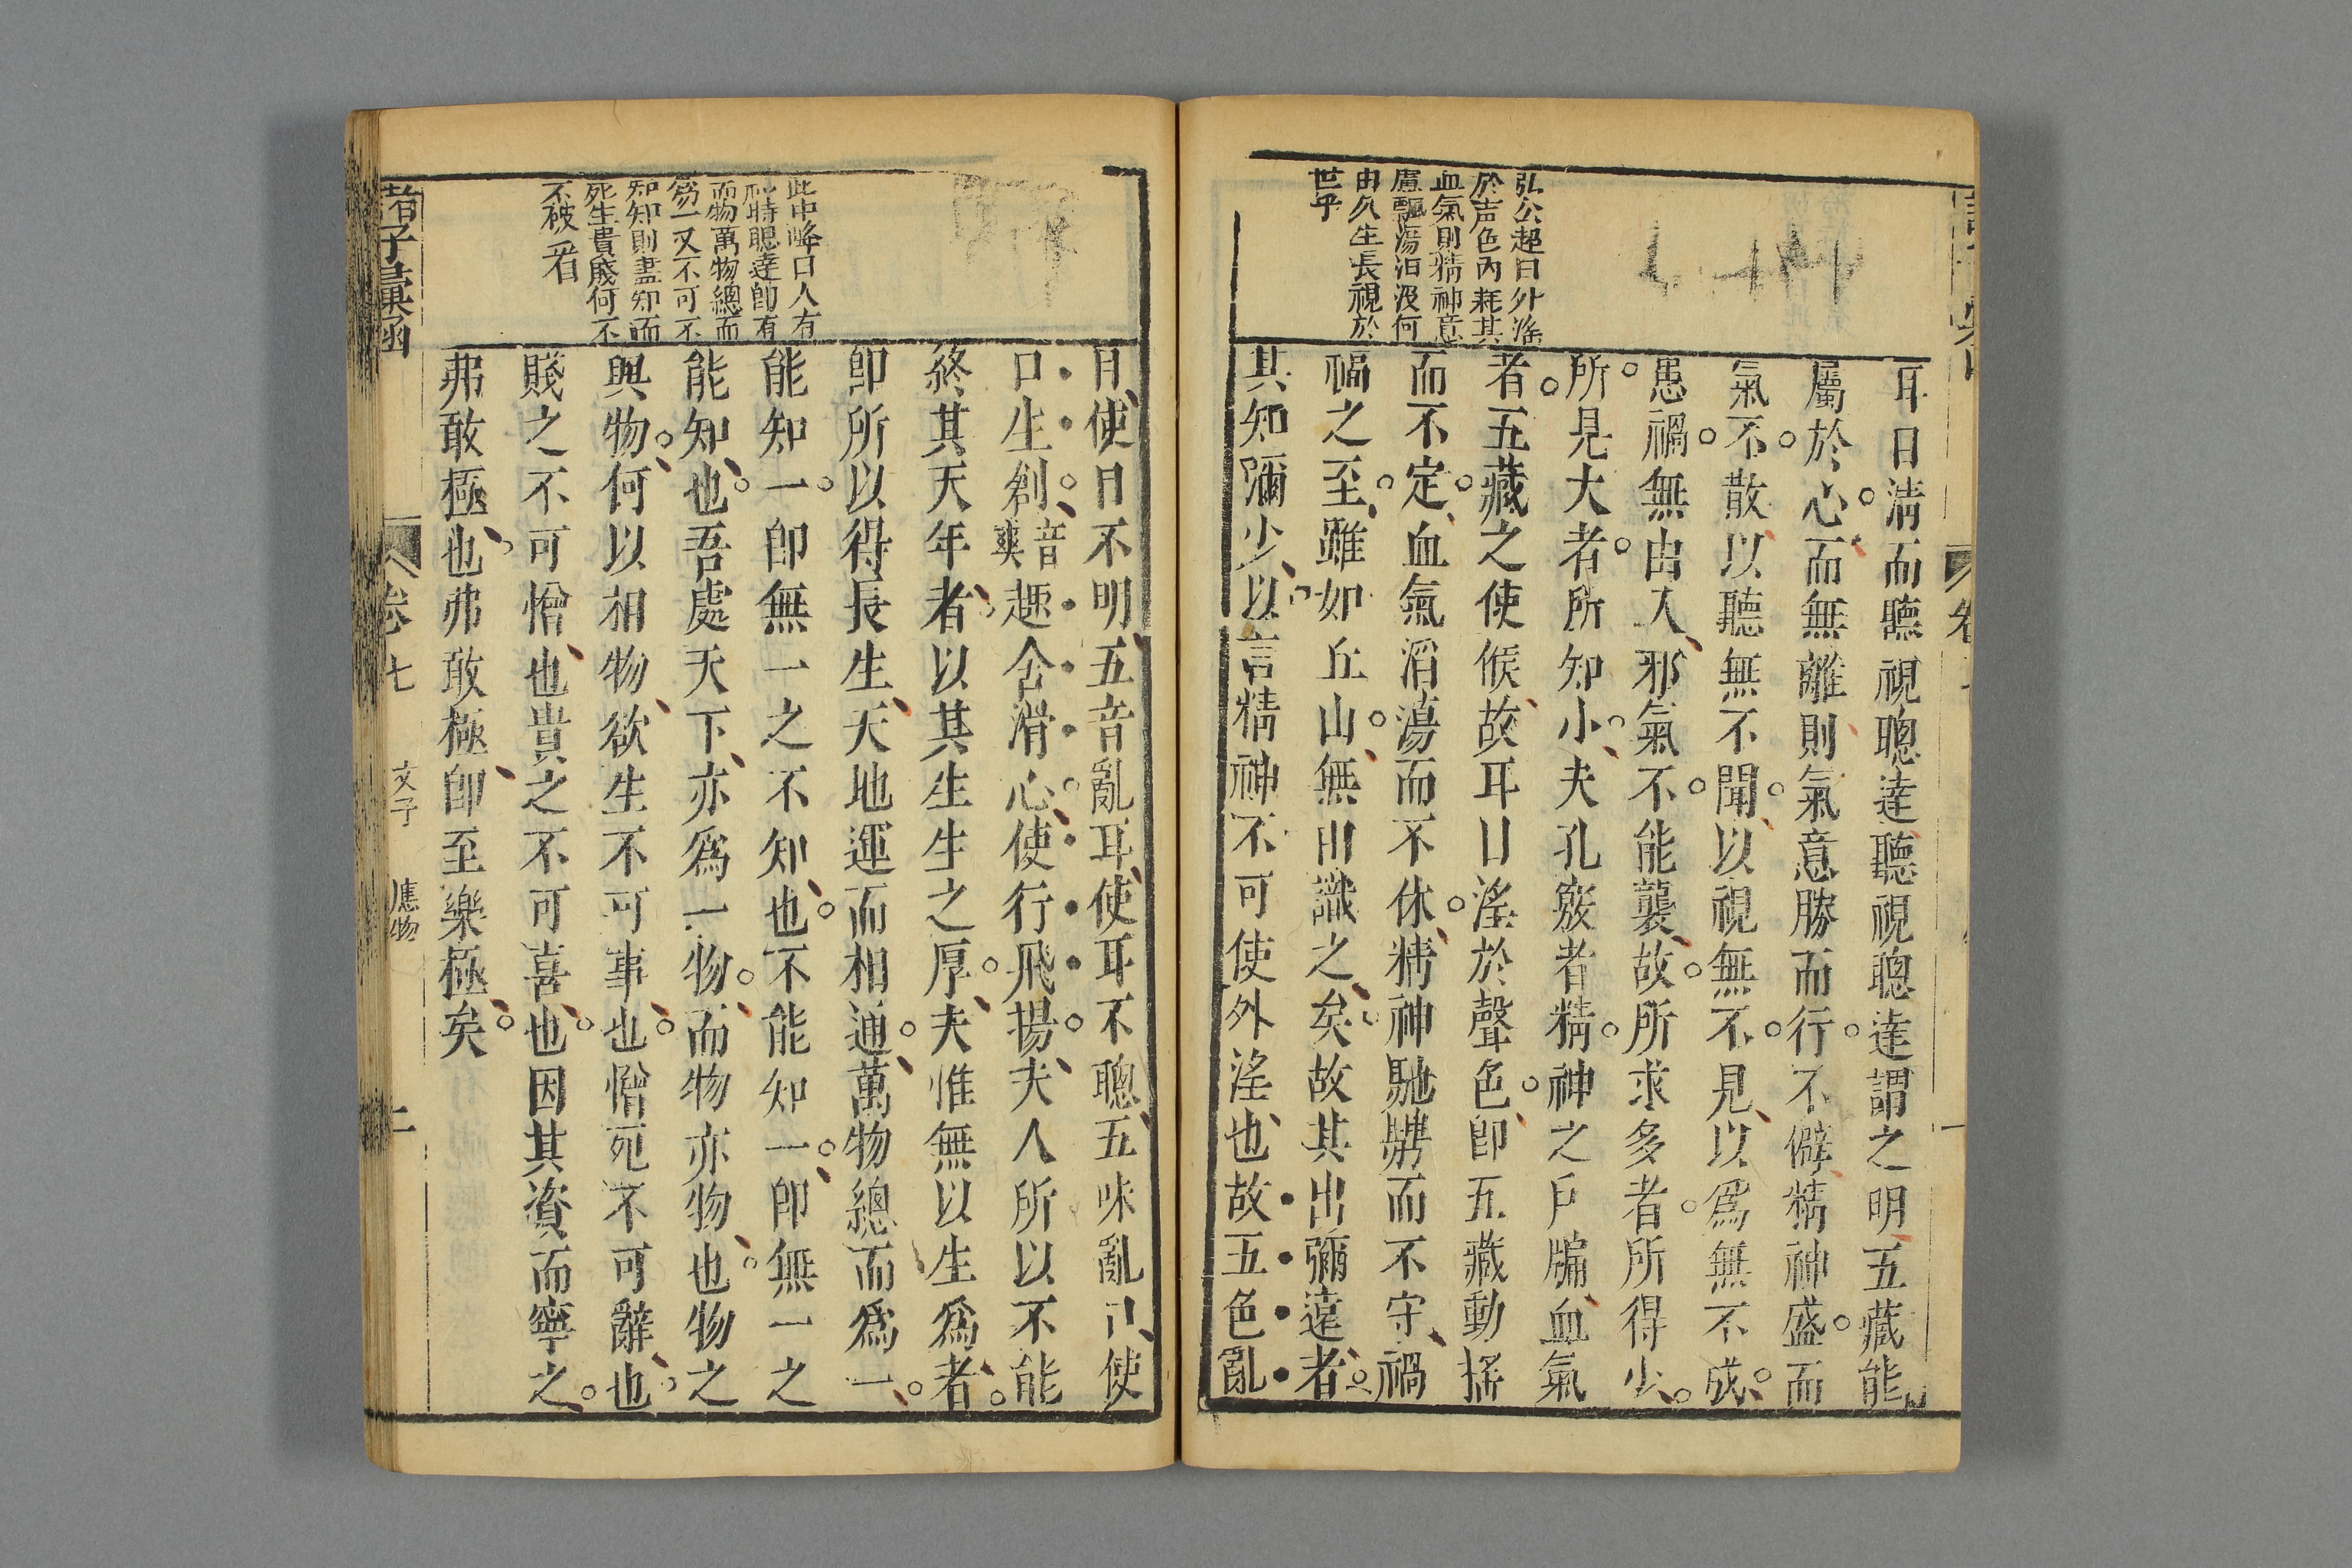 弘公趕曰外滛
於声色内耗其
血氣則精神意
慮飄蕩汨汲何
由久生長視於
世乎
耳目淸而聽視聰達聽視聰達謂之明五藏能
屬於心而無離則氣意勝而行不僻精神盛而
氣不散以聽無不聞以視無不見以爲無不成
愚禍無由入邪氣不能襲故所求多者所得少
所見大者所知小夫孔竅者精神之戶牖血氣
者五藏之使候故耳目滛於聲色卽五藏動揺
而不定血氣滔蕩而不休精神馳騁而不守禍
福之至雖如丘山無由識之矣故其出彌遠者
其知彌少以言精神不可使外滛也故五色亂
此中峰口人有
視時聰達卽有
而物萬物總而
爲一又不可不
知知則盡知而
死生貴賤何不
不被看
目使目不明五音亂耳使耳不聰五味亂口使
口生創音爽趣舍滑心使行飛揚夫人所以不能
終其天年者以其生生之厚夫惟無以生爲者
卽所以得長生天地運而相通萬物總而爲一
能知一卽無一之不知也不能知一卽無一之
能知也吾處天下亦爲一物而物亦物也物之
與物何以相物欲生不可事也憎死不可辭也
賤之不可憎也貴之不可喜也因其資而寧之
弗敢極也弗敢極卽至樂極矣
諸子彙函
卷七
文子
應物